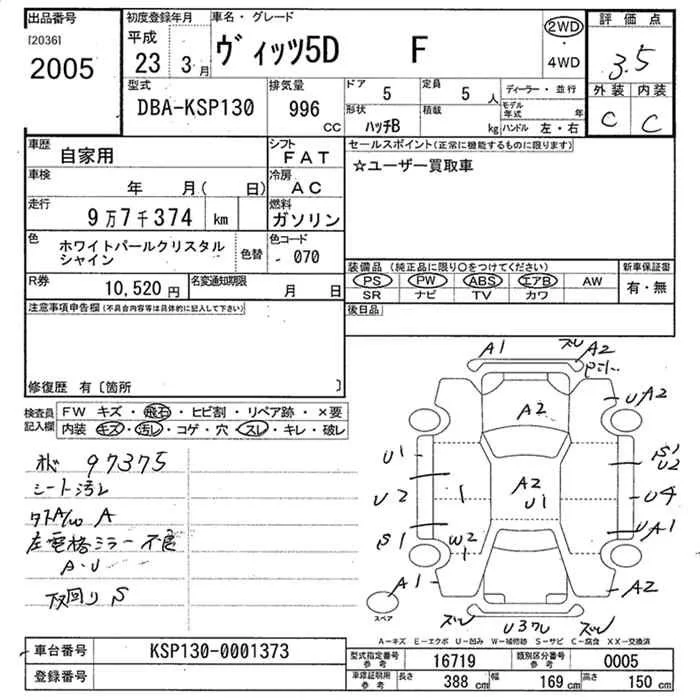 出品番号
[2036]
2005
初度登録年月
平成
23 3月
車名・グレード
ヴィッツ5D F
2WD
・
4WD
評価点
3.5
外装 内装
C C
型式
DBA-KSP130
排気量
996
CC
ドア
5
定員
5 人
形状
ハッチB
積載
kg
ディーラー・並行
モデル
年式 年
ハンドル 左・右
車歴
自家用
シフト
FAT
車検
年 月( 日)
冷房
AC
走行
9万7千374 km
燃料
ガソリン
色
ホワイトパールクリスタル
シャイン
色替
色コード
070
R券
10,520 円
名変通知期限
月 日
セールスポイント(正常に機能するものに限ります)
☆ユーザー買取車
装備品 (純正品に限り○をつけてください)
PS PW ABS エアB AW
SR ナビ TV カワ
新車保証書
有・無
後日品
注意事項申告欄(不具合内容等は具体的に記入して下さい)
修復歴 有〔箇所 〕
検査員
記入欄
FW キズ・飛石・ヒビ割・リペア跡・×要
内装 キズ・汚レ・コゲ・穴・スレ・キレ・破レ
97375
シート汚レ
A
左電格ミラー不良
A・U
下回り S
A1
ズレ
A2
A2
UA2
U1
S1
U2
U2
1
A2
U1
U4
S1
W2
1
UA1
A1
A2
スペア
ズレ
U3
ズレ
A-キズ E-エクボ U-凹み W-補修跡 S-サビ C-腐食 XX-交換済
車台番号
KSP130-0001373
登録番号
型式指定番号
参考
16719
類別区分番号
参考
0005
車庫証明用
参考
長さ
388 cm
幅
169 cm
高さ
150 cm